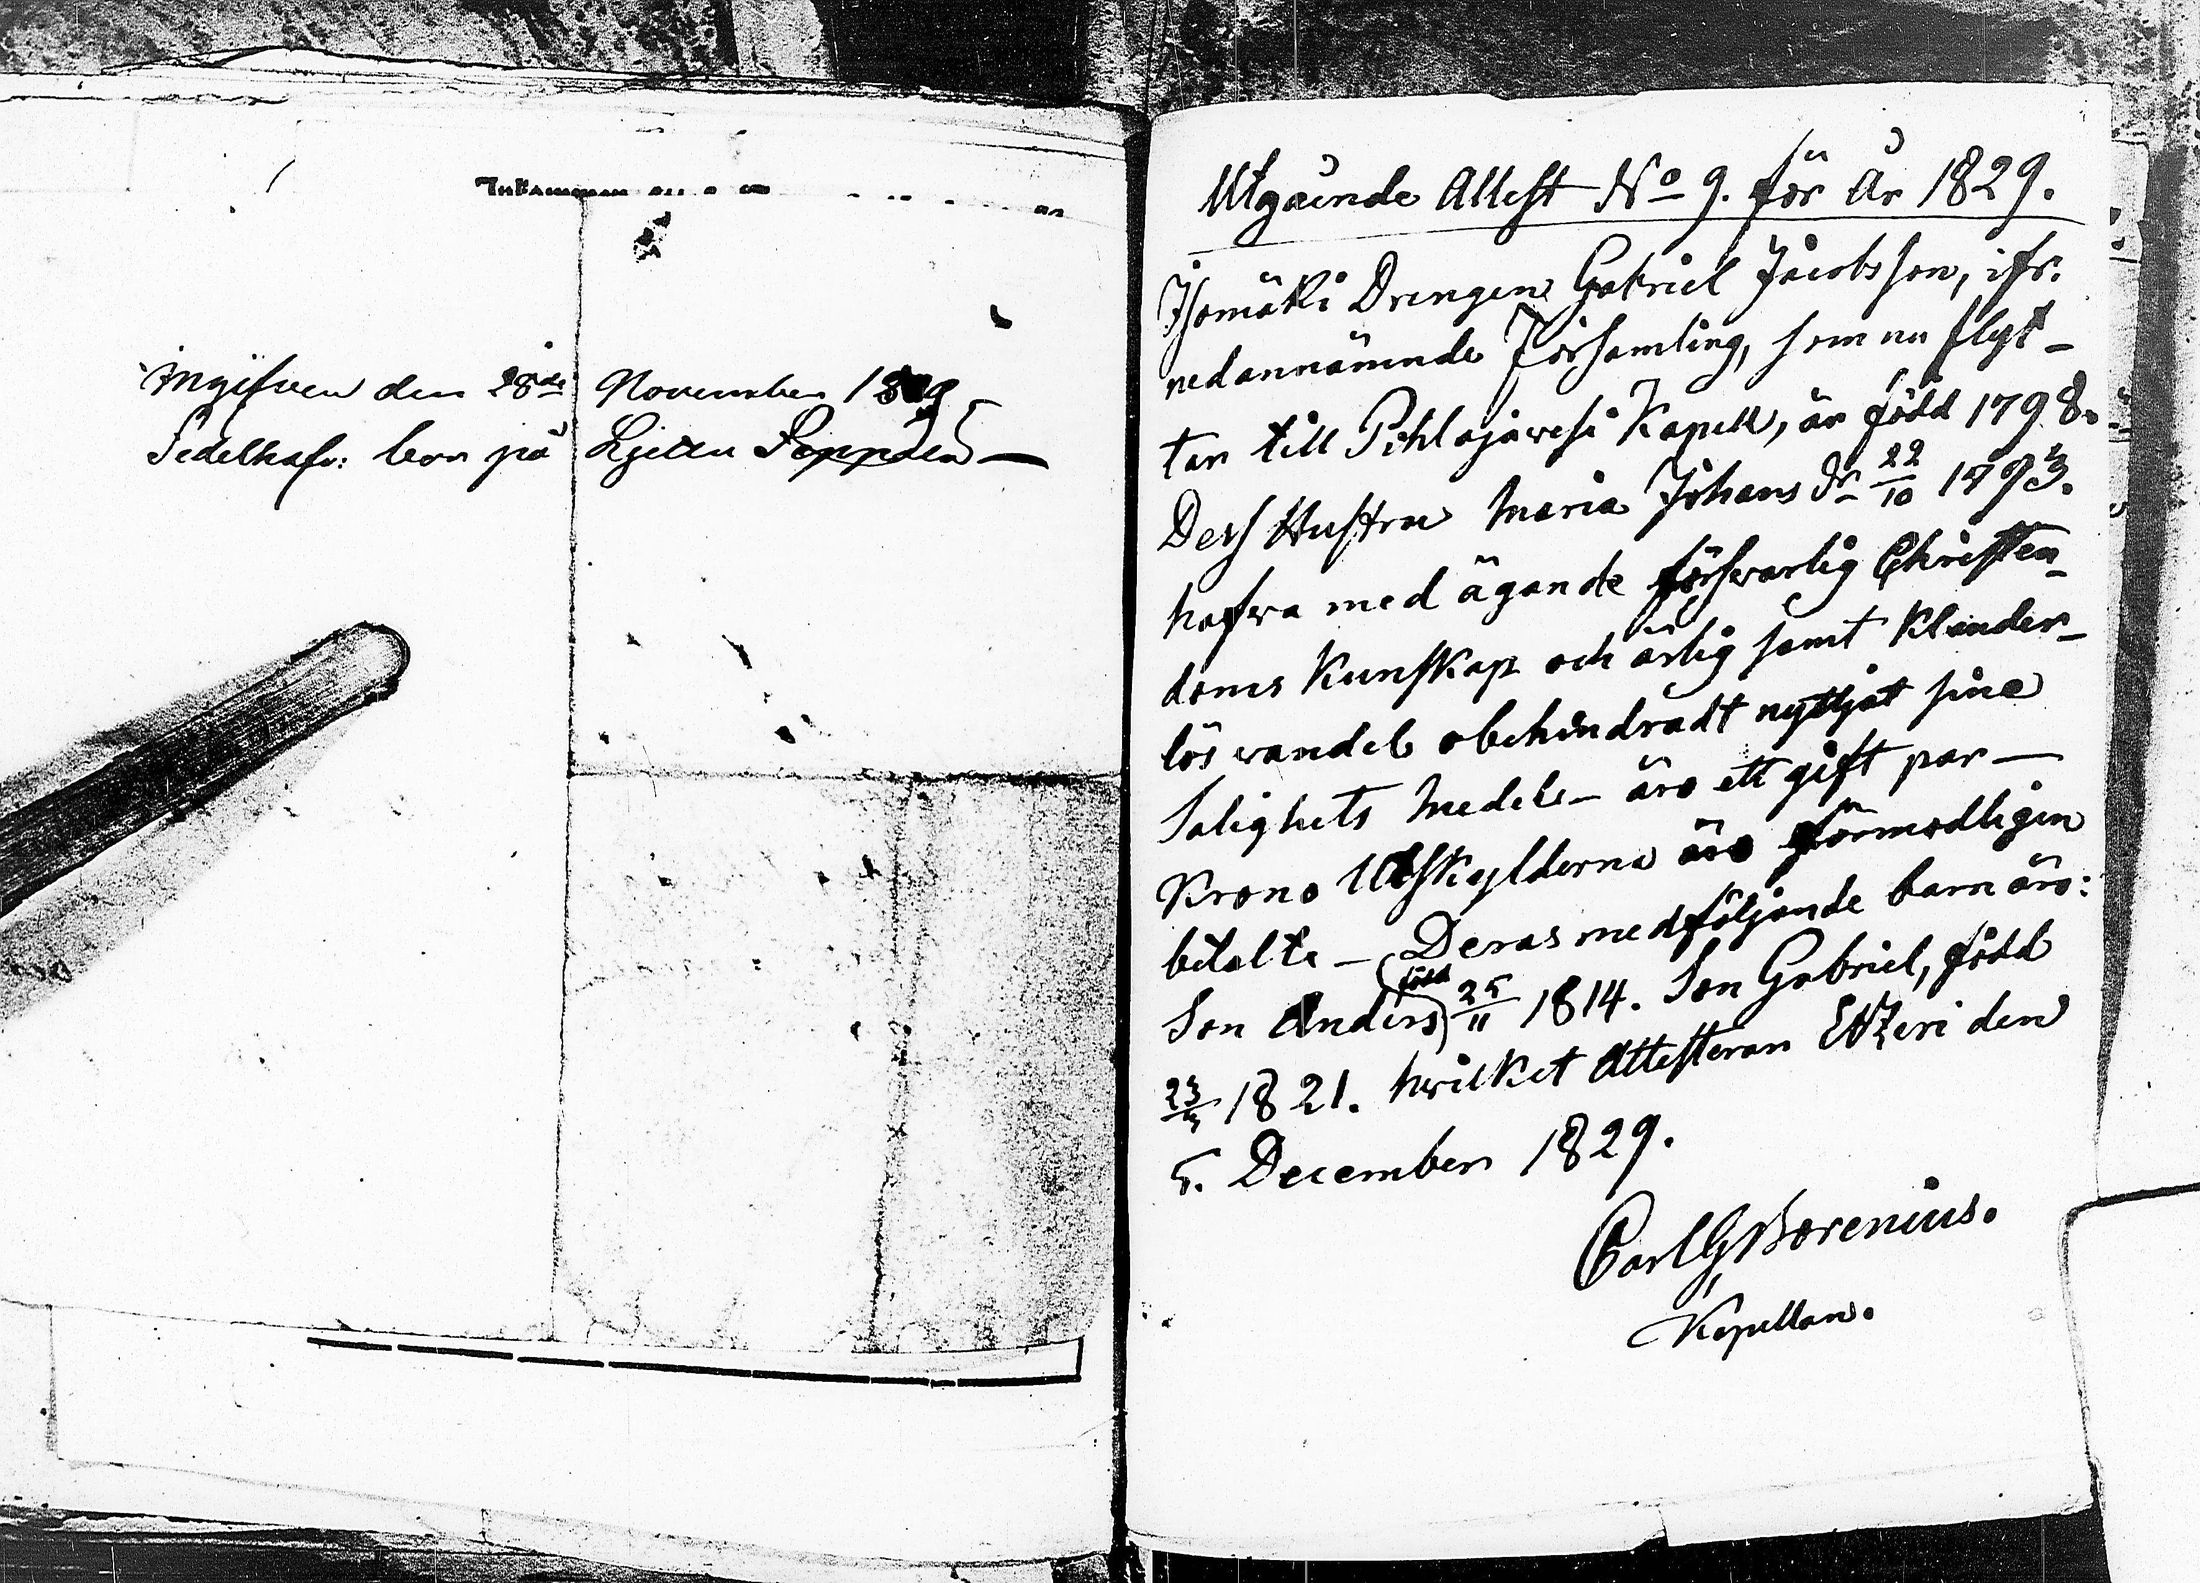 Ingifven den 28de November 1829
Sedelhafv: bor på
Utgående Attest No 9. för År 1829.
Isomäki Drengen Gabriel Jacobsson, ifr.
nedannämnde Församling, som nu flyt-
tar till Pihlajawesi Kapell, är född 1798.
Dess Hustru Maria Johans dr 22/10 1793.
hafwa med ägande förswarlig Christen-
doms Kunskap och ärlig samt klander-
lös wandel obehindradt nyttjat sine
Salighets Medel - äro ett gift par -
Krono Utskylderna äro förmodligen
betalte - Deras medföljande barn äro:
Son Anders (född) 25/11 1814. Son Gabriel, född
23/3 1821. hwilket Attesteran Etzeri den
5. December 1829.
Carl G Borenius.
Kapellan.